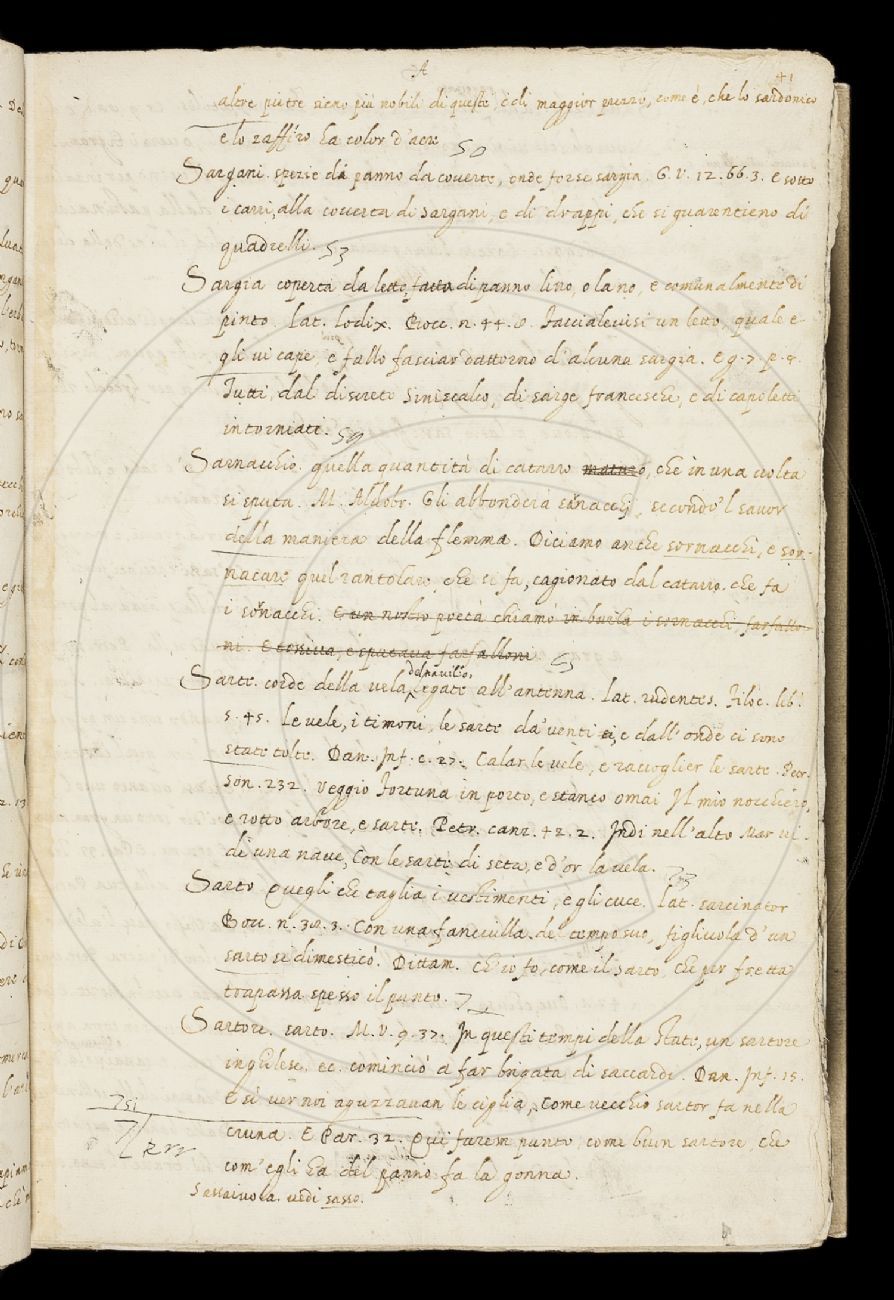 A
41
altre pietre sieno più nobili di queste, e di maggior prezzo, come è, che lo sardonico
e lo zaffiro ha color d'aere
50
Sargani. spezie di panno da coverte, onde forse sargia. G. V. 12. 66. 3. E sotto
i carri, alla coverta di sargani, e di drappi, che si guarentieno di
quadrelli. 53
Sargia coperta da letto, fatta di panno lino, o lano, e comunalmente di
pinto. Lat. Lodix. Bocc. n. 44. 8. Faccialevisi un letto, quale e
gli vi cape, e fallo fasciar dattorno d'alcuna sargia. E g. 7. p. 8.
Tutti, dal discreto Siniscalco, di sarge francesche, e di capoletti
intorniati. 59
Sarnacchio. quella quantità di catarro, che in una volta
si sputa. M. Aldobr. Gli abbonderà sornacchi, secondo 'l savor
della maniera della flemma. Diciamo anche sornacchi, e sor-
nacare quel rantolare, che si fa, cagionato dal catarro. che fa
i sornacchi. E un nostro poeta chiamò in burla i sornacchi, farfallo-
ni. E tossiva, e sputava farfalloni
Sarte. corde della vela del navilio, legate all'antenna. Lat. rudentes. Filoc. lib.
5. 45. Le vele, i timoni, le sarte da' venti, e dall'onde ci sono
state tolte. Dan. Inf. c. 27. Calar le vele, e raccoglier le sarte. Petr.
son. 232. Veggio Fortuna in porto, e stanco omai Il mio nocchiero,
e rotto arbore, e sarte. Petr. canz. 42. 2. Indi nell'alto Mar vi-
di una nave, Con le sarte di seta, e d'or la vela.
Sarto Quegli che taglia i vestimenti, e gli cuce. Lat. sarcinator
Bocc. n. 38. 3. Con una fanciulla del tempo suo, figliuola d'un
sarto si dimesticò. Dittam. Ch'io fo, come il sarto, che per fretta
trapassa spesso il punto.
Sartore. sarto. M. V. 9. 37. In questi tempi della State, un sartore
inghilese. ec. cominciò a far brigata di saccardi. Dan. Inf. 15.
E sì ver noi aguzzavan le ciglia, Come vecchio sartor fa nella
cruna. E Par. 32. Qui farem punto, come buon sartore, che
com'egli ha del panno fa la gonna.
Sassaivola. vedi sasso.